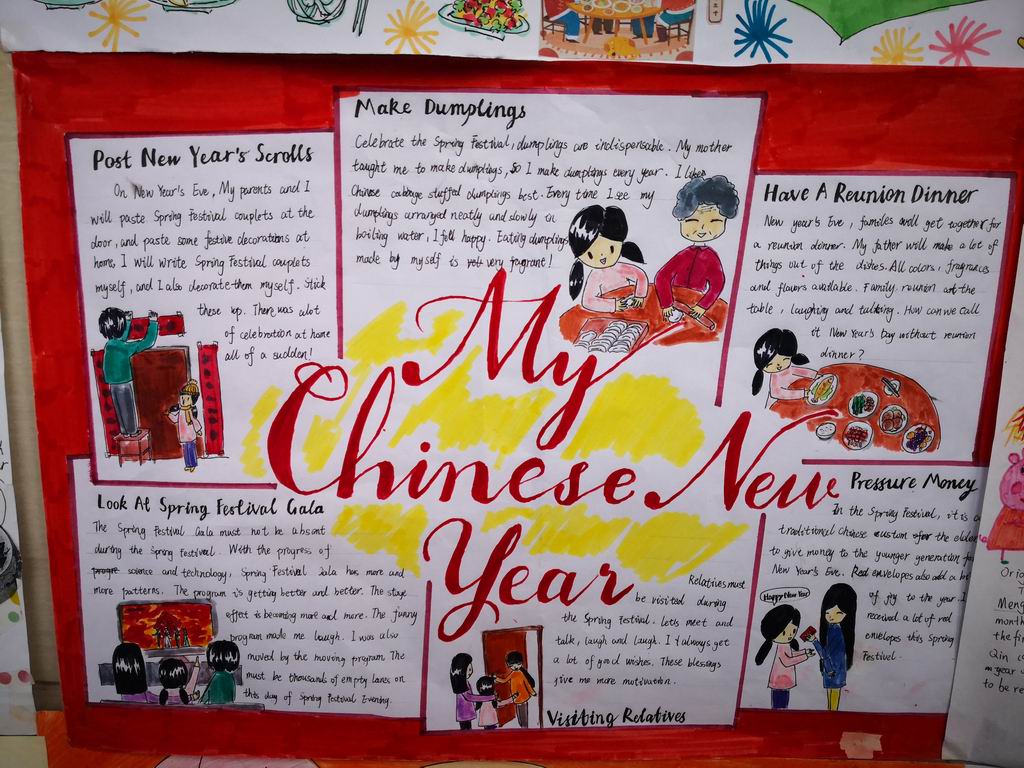 Make Dumplings
Celebrate the Spring Festival, dumplings are indispensable. My mother
taught me to make dumplings, so I make dumplings every year. I like
Chinese cabbage stuffed dumplings best. Every time I see my
dumplings arranged neatly and slowly in
boiling water, I fell happy. Eating dumplings
made by myself is very fragrant!
Post New Year's Scrolls
On New Year's Eve, My parents and I
will paste Spring Festival couplets at the
door, and paste some festive decorations at
home, I will write Spring Festival couplets
myself, and I also decorate them myself. Stick
these up. There was alot
of celebration at home
all of a sudden!
Have A Reunion Dinner
New year's Eve, families will get together for
a reunion dinner. My father will make a lot of
things out of the dishes. All colors, fragrances
and flavors available. Family reunion at the
table, laughing and talking. How can we call
it New Year's Day without reunion
dinner?
My
Chinese New
Year
Look At Spring Festival Gala
The Spring Festival Gala must not be absent
during the Spring Festival. With the progress of
science and technology, Spring Festival Gala has more and
more patterns. The program is getting better and better. The stage
effect is becoming more and more. The funny
program made me laugh. I was also
moved by the moving program. The
must be thousands of empty lanes on
this day of Spring Festival Evening.
Relatives must
be visited during
the Spring Festival. Let's meet and
talk, laugh and laugh. I always get
a lot of good wishes. These blessings
give me more motivation.
Visiting Relatives
Pressure Money
In the Spring Festival, it is a
traditional Chinese custom for the elder
to give money to the younger generation
New Year's Eve. Red envelopes also add a
of joy to the year. I
received a lot of red
envelopes this Spring
Festivel.
Happy New Year